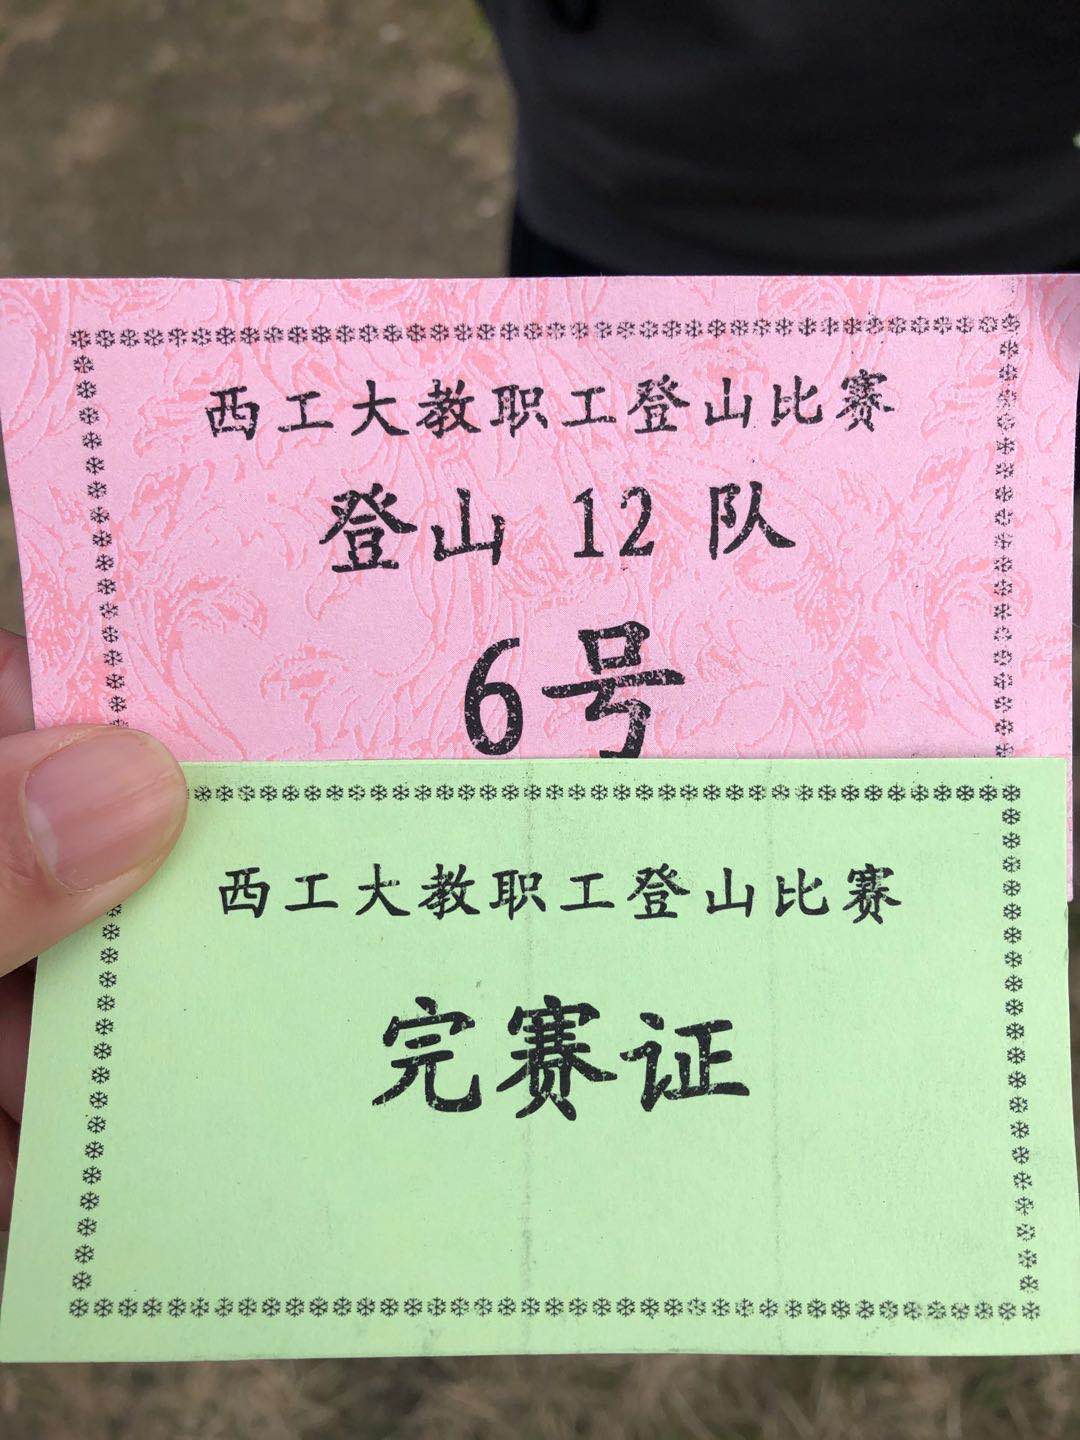 西工大教职工登山比赛
登山 12 队
6号
西工大教职工登山比赛
完赛证